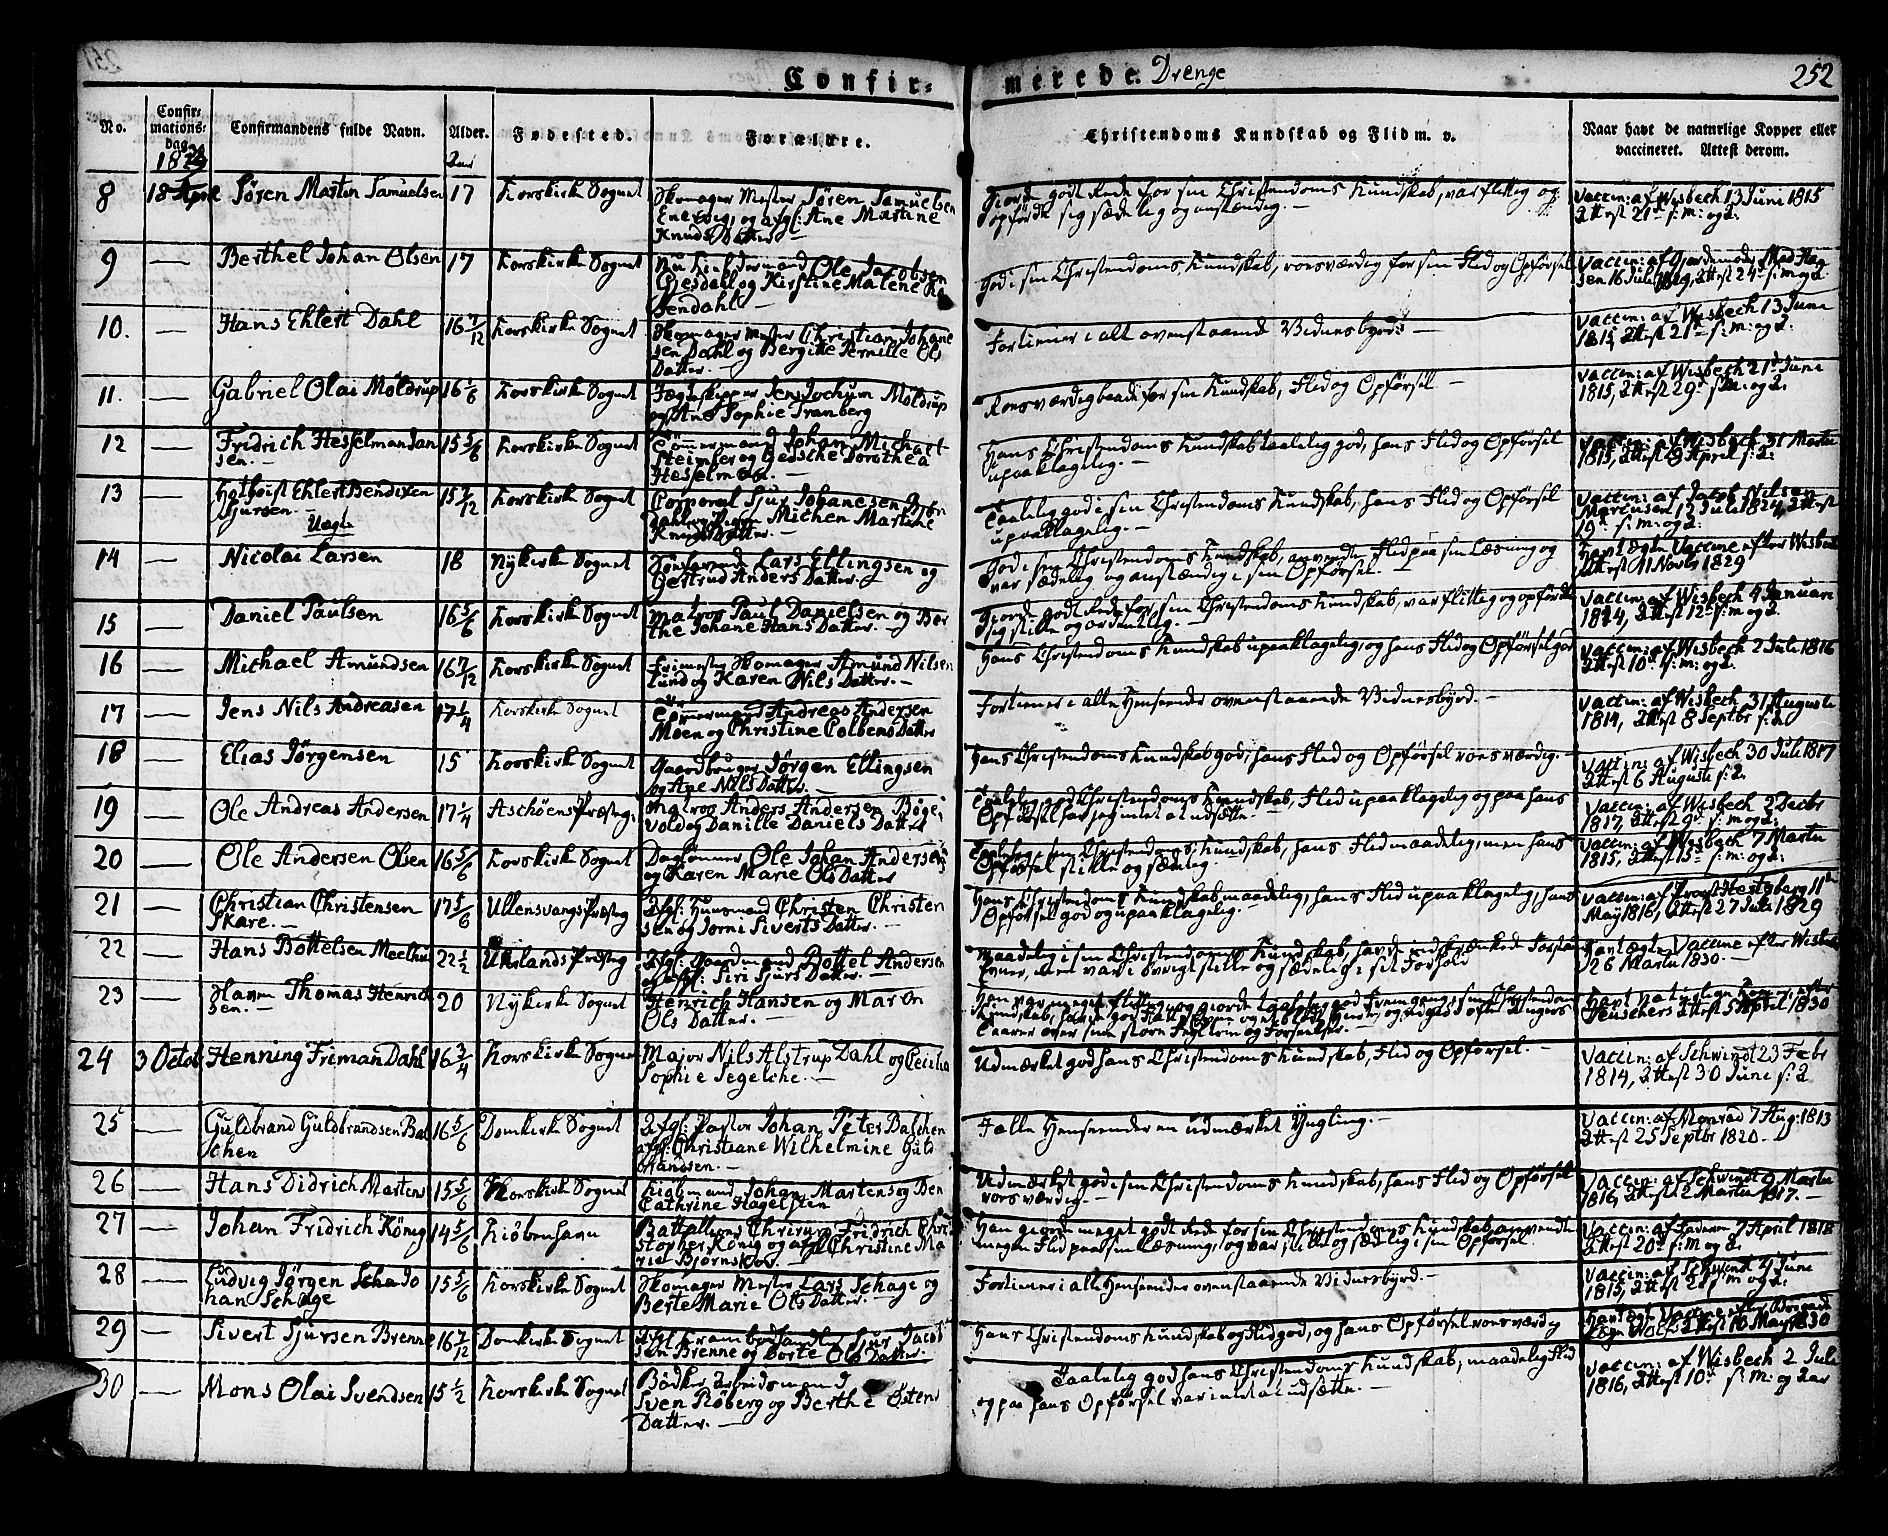 Confir-
merede.
Drenge
252
No.
Confir-
mations-
dag
Confirmandens fulde Navn.
Alder.
Fødested.
Forældre.
Christendoms Kundskab og Flid m. v.
Naar havt de naturlige Kopper eller
vaccineret. Attest derom.
8 18 April Søren Martin Samuelsen 17 Korskirke Sognet
Skomager Mester Sören Samuelsen
og afgl: Ane Martine
Knuds Datter
Gjorde godt Rede for sin Christendoms Kundskab, var flittig og
opførde sig sædelig og anstændig.
Vaccin: af Wisbech 13 Juni 1815
Attest 21de s: m: og A:
9 — Berthel Johan Olsen 17 Korskirke Sognet
Ole Jacobsen
Gjesdahl og Kirstine Malene
Sendahl
God i sin Christendoms Kundskab, rosværdig for sin Flid og Opførsel
Attest 24de s: m: og A:
10. — Hans Ehlert Dahl 16 7/12 Korskirke Sognet
Skomager Mester Christian Johane
sen Dahl og Bergitte Pernille Ols
Datter.
Fortiener i alt ovenstaaende Vidnesbyrd: —
Vaccin: af Wisbech 13 Juni
1815, Attest 21de s: m: og A:
11. — Gabriel Olai Möldrup 16 1/6 Korskirke Sognet
Jens Jochum Möldrup
og Ane Sophie Tranberg
Rosværdig baade for sin Kundskab, Flid og Opførsel —
Vaccin: af Wisbech 21de Juni
1815, Attest 29de s: m: og A:
12 — Fridrich Hesselman Jan
sen. 15 5/6 Korskirke Sognet
Tömmermand Johan Michael
og Gedsche Dorothea
Hesselman.
Hans Christendoms Kundskab taalelig god, hans Flid og Opførsel
upaaklagelig.
Vaccin: af Wisbech 31 Marts
1815, Attest 8 April s: A:
13 — Ehlert Bendixen
Sjursen. 15 7/12 Korskirke Sognet
Uægte
Corporal Sjur Johanesen
Michen Martine
Knuds Datter.
Taalelig god i sin Christendoms Kundskab, hans Flid og Opførsel
upaaklagelig. —
Vaccin: af Jacob Nilsen
Marcusen 12 Juli 1824, Attest
19de s: m: og A:
14 — Nicolai Larsen 18 Nykirke Sognet
Lars Ellingsen og
Gertrud Anders Datter.
God i sin Christendoms Kundskab, anvendte Flid paa sin Læsning og
var sædelig og anstændig i sin Opførsel.
Havt ægte Vaccine efter Wisbech
Attest 11 Novbr 1829
15 — Daniel Paulsen 16 5/6 Korskirke Sognet
Matros Paul Danielsen og Ber
the Johane Hans Datter. —
Gjorde godt Rede for sin Christendoms Kundskab, var flittig og opförde
sig stille og ordentlig. —
Vaccin: af Wisbech 4 Januari
1814, Attest 12te s: m: og A:
16 — Michael Amundsen 16 7/12 Korskirke Sognet
Skomager Amund Nilsen
Lund og Karen Nils Datter. —
Hans Christendoms Kundskab upaaklagelig, og hans Flid og Opførsel god
Vaccin: af Wisbech 2 Juli 1816
Attest 10de s: m: og A:
17 — Jens Nils Andreasen 17 1/4 Korskirke Sognet
Tömmermand Andreas Andersen
Moen og Christine Colbens Datter
Fortiener i alle Henseender ovenstaaende Vidnesbyrd. —
Vaccin: af Wisbech 31 Auguste
1814, Attest 8 Septbr s: A:
18 — Elias Jörgensen 15 Korskirke Sognet
Gaardbruger Jörgen Ellingsen
og Ane Nils Datter.
Hans Christendoms Kundskab god, hans Flid og Opførsel rosværdig. —
Vaccin: af Wisbech 30 Juli 1817
Attest 6 Auguste s: A:
19 — Ole Andreas Andersen 17 1/4 Aschöens Præsteg:
Matros Anders Andersen Böge
vold og Danille Daniels Datter
Taalelig god Christendoms Kundskab, Flid upaaklagelig og paa hans
Opførsel har jeg intet at udsætte.
Vaccin: af Wisbech 2 Decbr
1817, Attest 9de s: m: og A:
20 — Ole Andersen Olsen 16 5/6 Korskirke Sognet
Daglönner Ole Johan Andersen
og Karen Marie Ols Datter
Taalelig i sin Christendoms Kundskab, hans Flid maadelig, men hans
Opförsel stille og sædelig.
Vaccin: af Wisbech 7 Marts
1815, Attest 15de s: m: og A:
21 — Christian Christensen
Skare. — 17 5/6 Ullensvangs Præsteg
Afgl: Huusmand Christen Christen
sen og Jorni Siverts Datter. —
Hans Christendoms Kundskab maadelig, hans Flid upaaklagelig, hans
Opförsel god og upaaklagelig. —
Vaccin: af Provst Hertzberg 11te
May 1816, Attest 27 Juli 1829
22 — Hans Bottelsen Meelhus 22 1/2 Præsteg
Afgl: Gaardmand Bottel Andersen
og Siri Sjurs Datter. —
Maadelig i sin Christendoms Kundskab, havde indskrænkede Forstands
Evner, men var i övrigt stille og sædelig i sit Forhold
Havt ægte Vaccine efter Wisbech
26 Marts 1830. —
23 — Thomas Henrich
sen. — 20 Nykirke Sognet
Henrich Hansen og Maron
Ols Datter. —
5 April 1830
24 3 Octob Henning Friman Dahl 16 3/4 Korskirke Sognet
Major Nils Alstrup Dahl og Cecilia
Sophie Segelche. —
Udmærket god hans Christendoms Kundskab, Flid og Opførsel. —
Vaccin: af Schwindt 23 Febr
1814, Attest 30 Juni s: A
25 — Guldbrand Guldbrandsen Bal
schen 16 5/6 Domkirke Sognet
Afgl: Pastor Johan Peter Balchen
afgl: Christiane Wilhelmine Gulb
randsen. —
I alle Henseender en udmærket Yngling. —
Vaccin: af Monrad 7 Aug: 1813
Attest 25 Septbr 1820. —
26 — Hans Didrich Martens 15 5/6 Korskirke Sognet
Kiøbmand Johan Martens og Ben
Cathrine Hagelsten
Udmærket god i sin Christendoms Kundskab, hans Flid og Opførsel
rosværdig. —
Vaccin: af Schwindt 9 Marts
1816, Attest 2 Marts 1817. —
27 — Johan Fridrich König 14 5/6 Kiöbenhavn
Battallions Chirurg Fridrich Chri
stopher König og Christine Ma
rie Bjørnskov. —
Han gjorde meget godt Rede for sin Christendoms Kundskab, anvendte
megen Flid paa sin Læsning, og var stille og sædelig i sin Opførsel
7 April 1818
Attest 20de s: m og A:
28 — Ludvig Jörgen Scha Jo
han Schage 15 5/6 Korskirke Sognet
Skomager Mester Lars Schage og
Berte Marie Ols Datter. —
Fortiener i alle Henseender ovenstaaende Vidnesbyrd. —
Vaccin: af Schwindt Juni
1815, Attest s: m og A:
29 — Sivert Sjursen Brenne 16 7/12 Domkirke Sognet
Sjur Jacob
sen Brenne og Dorte Ols Datter. —
Hans Christendoms Kundskab og Flid god, og hans Opførsel rosværdig
Attest 16 May 1830
30 — Mons Olai Svendsen 15 1/2 Korskirke Sognet
Bödker Arbeidsmand
Sven Röberg og Berthe Østens
Datter. —
Taalelig god hans Christendoms Kundskab, maadelig Flid
og paa hans Opförsel var intet at udsætte. —
Vaccin: af Wisbech 2 Juli
1816, Attest 10de s: m: og Aar